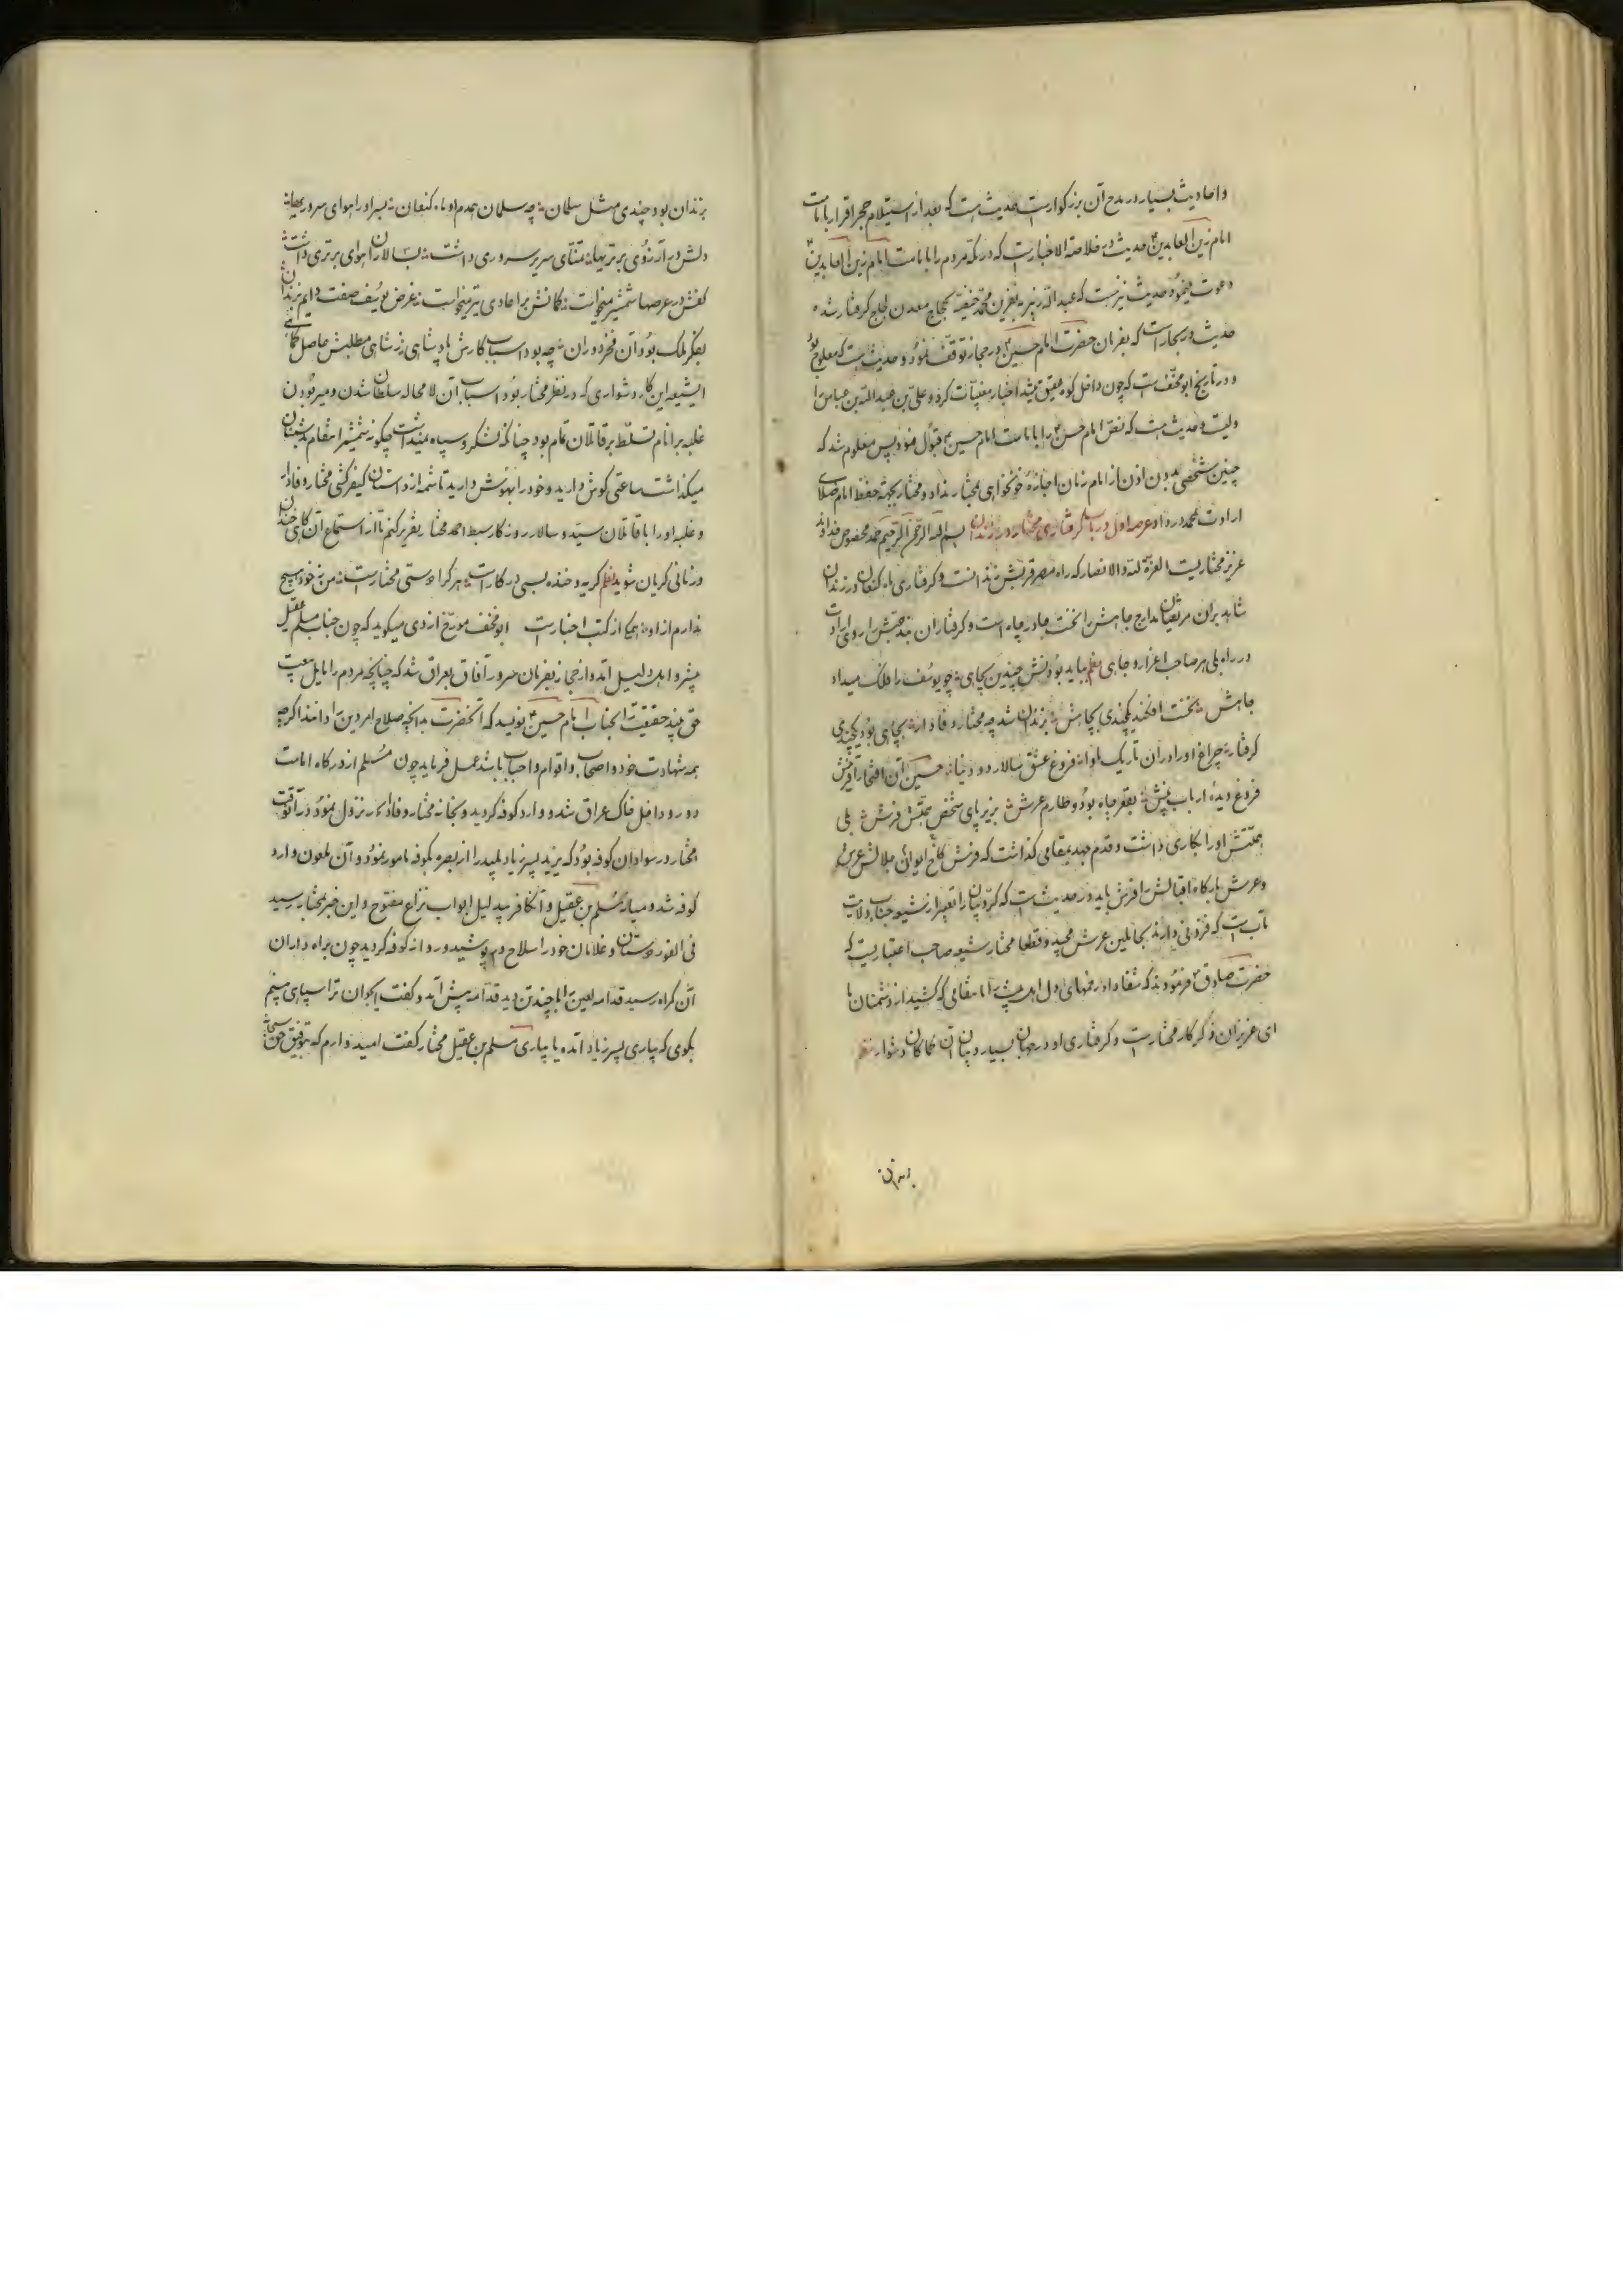 و احادیث بسیار در مدح آن بزرگوار است حدیث است که بعد از استیلام حجر اقرار بامامت
امام زین العابدین حدیث در خلاصة الاخبار است که در مکه مردم را بامامت امام زین العابدین
دعوت مینمود حدیث نیز هست که عبدالله زبیر بنفرین محمد حنیفه بحجاج معدن لجاج گرفتار شده
حدیث در بحار است که بفرمان حضرت امام حسین در حجاز توقف نمود و حدیث است که معلوم بود
و در تاریخ ابو مخنف است که چون داخل کوه عقیق میشد اخبار مغیبات کرد و علی بن عبدالله بن عباس را
ولیت و حدیث است که نص امام حسن را بامامت امام حسین قبول نمود پس معلوم شد که
چنین شخصی بدون اذن از امام زمان اجازهٔ خونخواهی بمختار نداد و مختار بجهة حفظ امام صلای
ارادت محمد در داد عرصه اول در باب گرفتاری مختار در زندان بسم الله الرحمن الرحیم حمد مخصوص خداوند
عزیز مختاریست العزة لله و الانصار که راه مصر قربش زندانست و گرفتاری ماه کنعان در زندان
شاهد بر آن مرتقیان مدارج جاهش را نخست جا در چاه است و گرفتاران بند حبش را روی ارادت
در راه بلی هر صاحب اعزاز و جاهی نظم بباید بودنش چندین بچاهی چو یوسف را فلک میداد
جاهش نخست افکند یکچندی بچاهش بزندان شد چه مختار وفادار بچاهی بود یکچندی
گرفتار چراغ او در آن تاریک ماوا فروغ عشق سالار دو دنیا حسین آن افتخار آفرینش
فروغ دیدهٔ ارباب بینش بقعر چاه بود و طارم عرش بزیر پای شخص همتش فرش بلی
همتش او را بکاری داشت و قدم جهد بمقامی گذاشت که فرش کاخ ایوان جلالش عرش
و عرش بارگاه اقبالش را فرش باید در حدیث است که کروبیان را تعبیر از شیعه جناب ولایت
مآب است که فزونی دارند بحاملین عرش مجید و قطعا مختار شیعه صاحب اعتباریست که
حضرت صادق فرمودند که شفا داد زخمهای دل اهل بیت را ما مقامی که کشید از دشمنان ما
ای عزیزان ذکر کار مختار است و گرفتاری او در جهان بسیار و بیان آن کماکان دشوار نظم
بزندان
بزندان بود چندی مثل سلمان چه سلمان همدم او ماه کنعان بسر او را هوای سروریها
دلش در آرزوی برتریها تمنای سریر سروری داشت بسالاران هوای برتری داشت
کفش در عرصها شمشیر میخواست کمانش بر اعادی تیر میخواست غرض یوسف صفت دایم بزندان
بفکر ملک بود آن فخر دوران چه بود اسباب کارش پادشاهی ز شاهی مطلبش حاصل کماهی
ایشیعه این کار دشواری که در نظر مختار بود اسباب آن لا محاله سلطان شدن و میر بودن
غلبه بر انام تسلط بر قاتلان تمام بود چنانکه لشکر و سپاه میبایست چگونه شمشیر انتقام بدشمنان
میگذاشت ساعتی گوش دارید و خود را بهوش دارید تا شمه از داستان کیفرکشی مختار وفادار
و غلبه او را با قاتلان سید و سالار روزگار سبط احمد مختار تقریر کنم تا از استماع آن گاهی خندان
و زمانی گریان شوید نظم گریه و خنده بسی در کار است هر کرا دوستی مختار است من نه خود هیچ
ندارم از او همه از کتب اخبار است ابو مخنف مورخ ازدی میگوید که چون جناب مسلم عقیل
پیشرو اهل دلیل آمد و از حجاز بفرمان سرور آفاق بعراق شد که چنانچه مردم را مایل بیعت
حق بیند حقیقت را بجناب امام حسین بنویسد که آنحضرت بدانچه صلاح امر دین را داند اگر چه
همه شهادت خود و اصحاب و اقوام و احباب باشد عمل فرماید چون مسلم از درگاه امامت
دور و داخل خاک عراق شد و وارد کوفه گردید و بخانه مختار وفادار نزول نمود در آنوقت
مختار در سوادان کوفه بود که یزید پسر زیاد پلید را از بصره بکوفه مامور نمود و آن ملعون وارد
کوفه شد و میان مسلم بن عقیل و آنکافر بیدلیل ابواب نزاع مفتوح و این خبر بمختار رسید
فی الفور دوستان و غلامان خود را سلاح در پوشید و روانه کوفه گردید چون براه داران
آن گمراه رسید قدامه لعین را با چند تن دید قدامه پیش آمد و گفت ایجوان ترا سپاهی میبینم
بگوی که بیاری پسر زیاد آمده یا بیاری مسلم بن عقیل مختار گفت امیدوارم که بتوفیق حق سبحانه